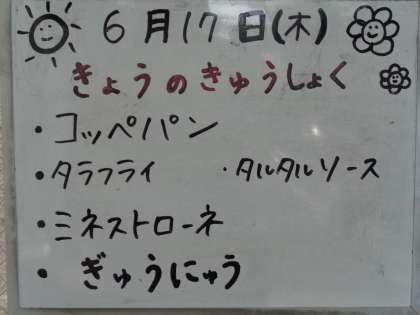 6月17日(木)
きょうのきゅうしょく
・コッペパン
・タラフライ ・タルタルソース
・ミネストローネ
・ぎゅうにゅう